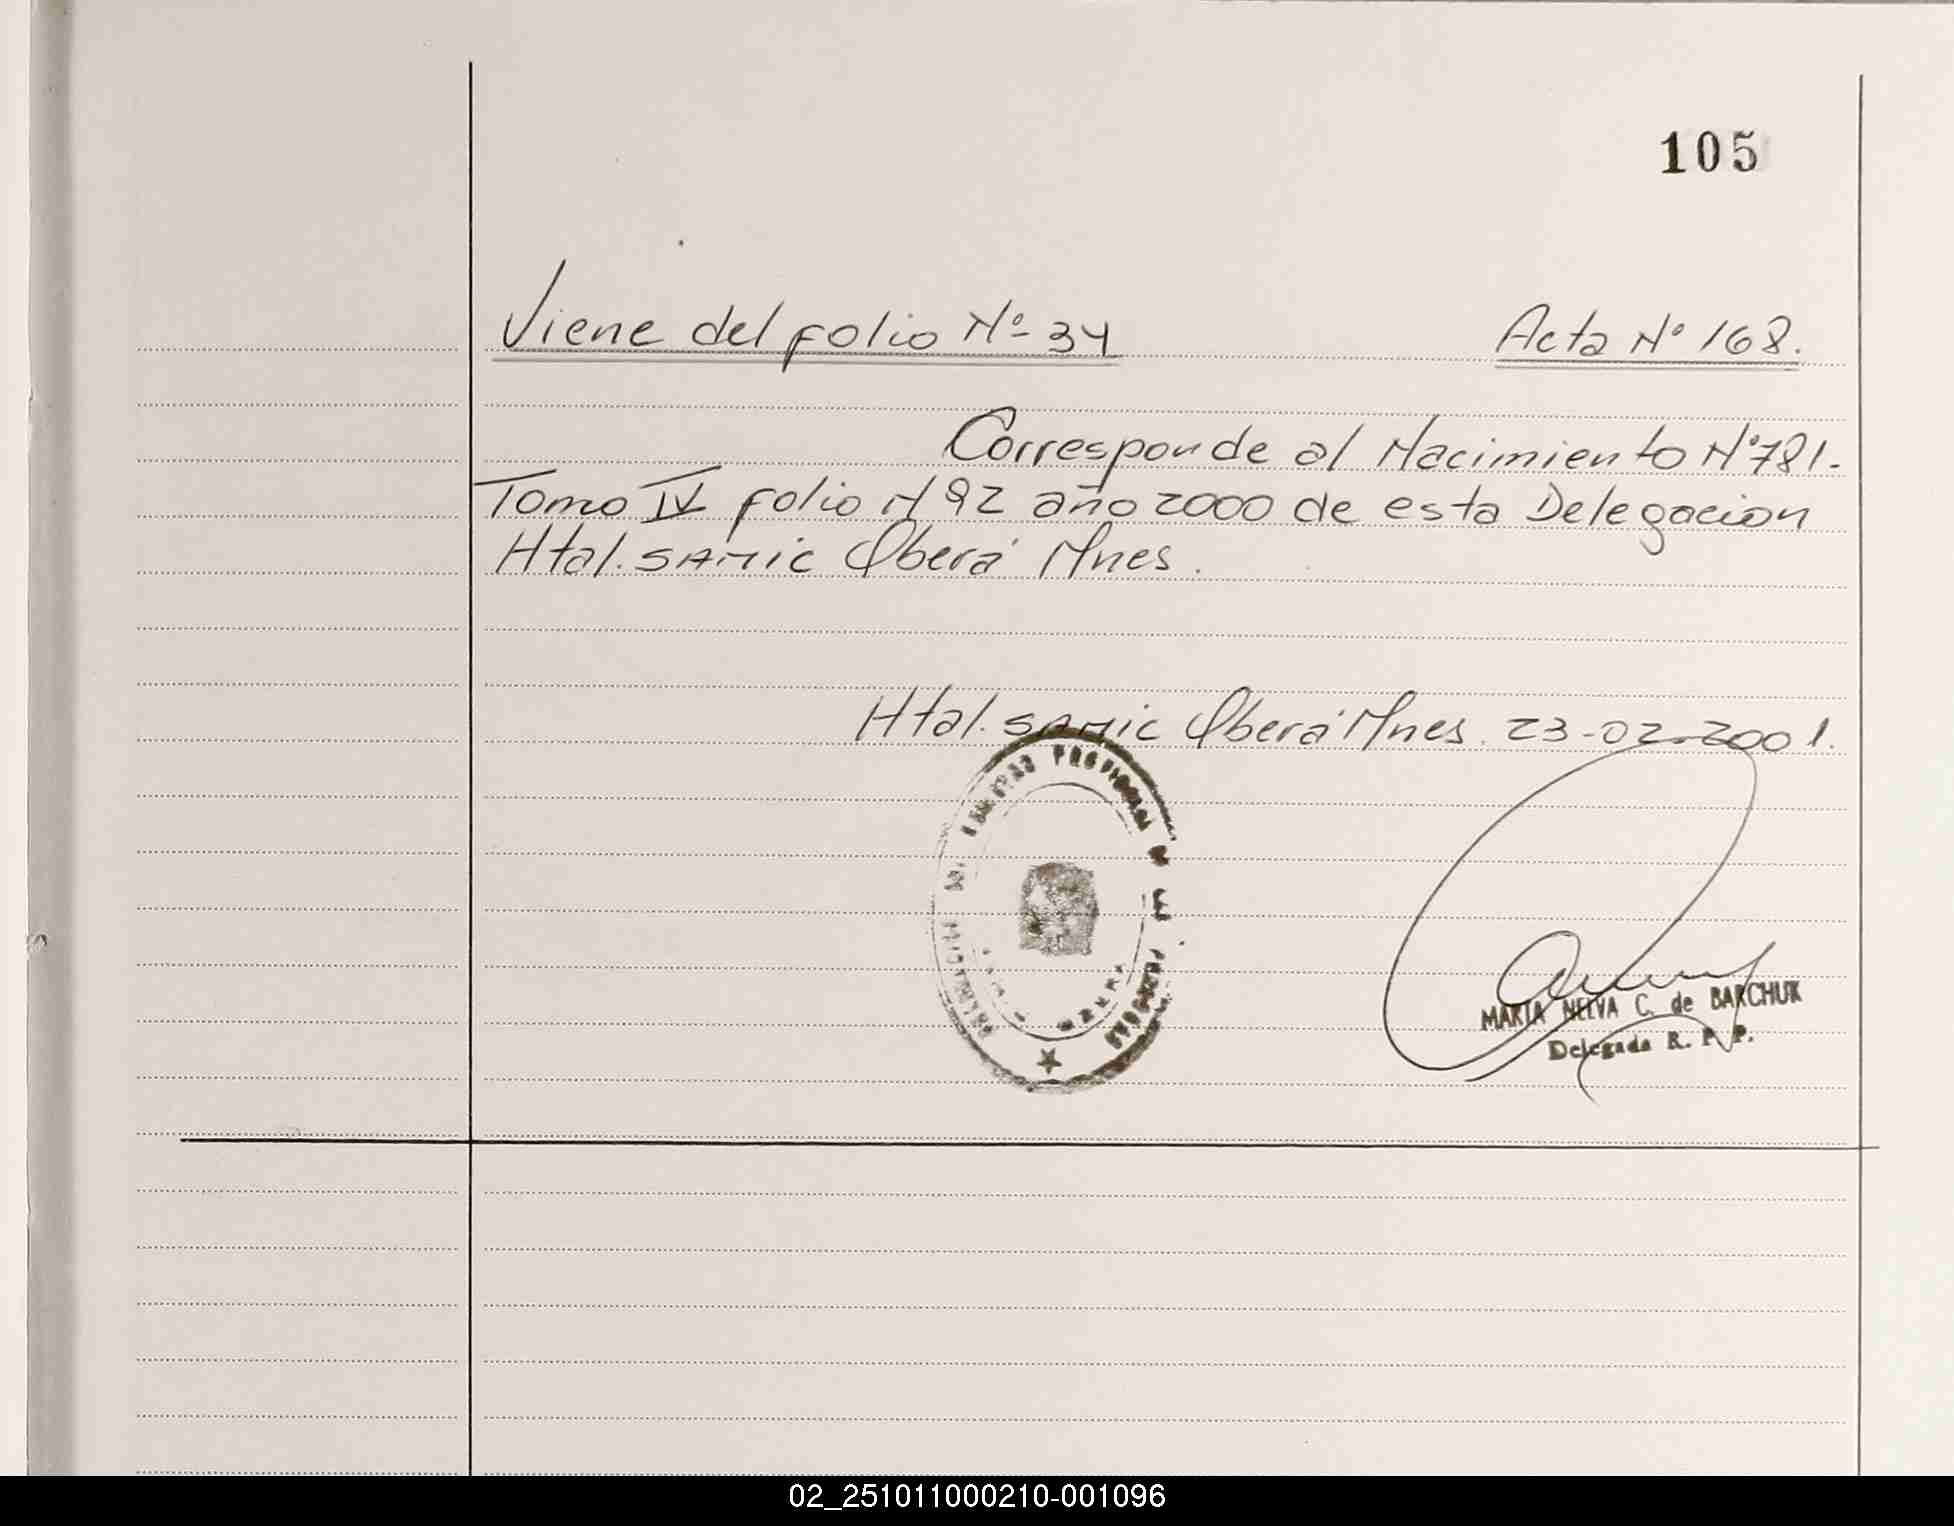 105
Viene del folio Nº 34
Acta Nº 168.
Corresponde al Nacimiento Nº 781.
Tomo IV folio N 92 año 2000 de esta Delegacion
Htal. SAMIC Oberá Mnes.
Htal. SAMIC Oberá Mnes. 23-02-2001.
MARIA NELVA C. de BARCHUK
Delegada R. P. P.
02_251011000210-001096